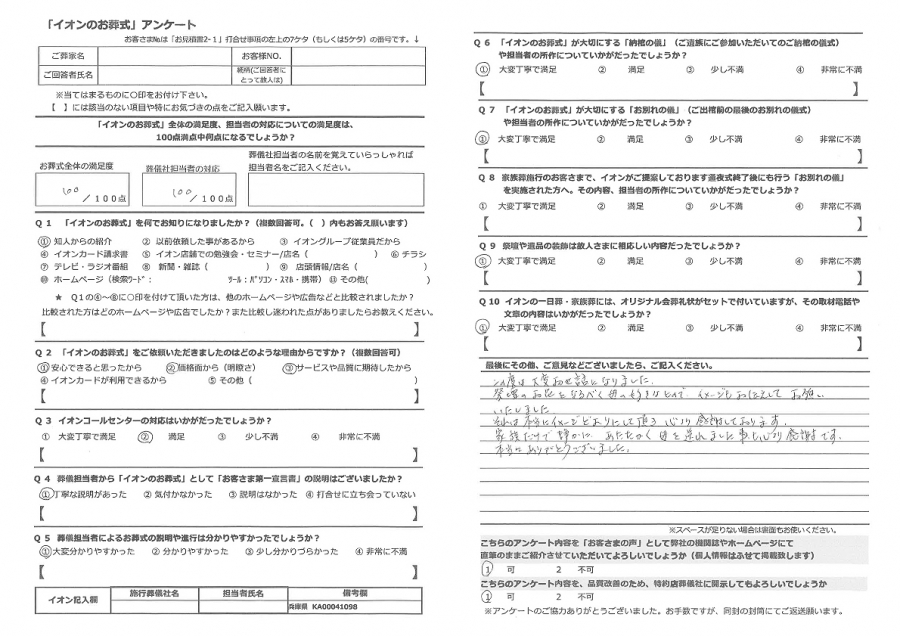 「イオンのお葬式」アンケート
お客さまNo.は「お見積書2-1」打合せ事項の左上の7ケタ（もしくは5ケタ）の番号です。↓
ご葬家名 お客様NO.
ご回答者氏名 続柄(ご回答者にとって故人は)
※当てはまるものに○印をお付け下さい。
【　】には該当のない項目や特にお気づきの点をご記入願います。
「イオンのお葬式」全体の満足度、担当者の対応についての満足度は、
100点満点中何点になるでしょうか？
お葬式全体の満足度 葬儀社担当者の対応 葬儀社担当者の名前を覚えていらっしゃれば
担当者名をご記入ください。
100／100点 100／100点
Q１ 「イオンのお葬式」を何でお知りになりましたか？（複数回答可。（　）内もお答え願います）
① 知人からの紹介 ② 以前依頼した事があるから ③ イオングループ従業員だから
④ イオンカード請求書 ⑤ イオン店舗での勉強会・セミナー/店名（　） ⑥ チラシ
⑦ テレビ・ラジオ番組 ⑧ 新聞・雑誌（　） ⑨ 店頭情報/店名（　）
⑩ ホームページ（検索ワード： ツール：パソコン・スマホ・携帯） ⑪ その他(　)
★ Q１の④～⑧に○印を付けて頂いた方は、他のホームページや広告などと比較されましたか？
比較された方はどのホームページや広告でしたか？また比較し迷われた点がありましたらお教えください。
【　】
Q２ 「イオンのお葬式」をご依頼いただきましたのはどのような理由からですか？（複数回答可）
①安心できると思ったから ②価格面から（明瞭さ） ③サービスや品質に期待したから
④イオンカードが利用できるから ⑤ その他（　）
【　】
Q３ イオンコールセンターの対応はいかがだったでしょうか？
① 大変丁寧で満足 ② 満足 ③ 少し不満 ④ 非常に不満
【　】
Q４ 葬儀担当者から「イオンのお葬式」として「お客さま第一宣言書」の説明はございましたか？
①丁寧な説明があった ② 気付かなかった ③ 説明はなかった ④ 打合せに立ち会っていない
【　】
Q５ 葬儀担当者によるお葬式の説明や進行は分かりやすかったでしょうか？
①大変分かりやすかった ② 分かりやすかった ③ 少し分かりづらかった ④ 非常に不満
【　】
イオン記入欄 施行葬儀社名 担当者氏名 備考欄
兵庫県 KA00041098
Q６ 「イオンのお葬式」が大切にする「納棺の儀」（ご遺族にご参加いただいてのご納棺の儀式）
や担当者の所作についていかがだったでしょうか？
① 大変丁寧で満足 ② 満足 ③ 少し不満 ④ 非常に不満
【　】
Q７ 「イオンのお葬式」が大切にする「お別れの儀」（ご出棺前の最後のお別れの儀式）
や担当者の所作についていかがだったでしょうか？
① 大変丁寧で満足 ② 満足 ③ 少し不満 ④ 非常に不満
【　】
Q８ 家族葬施行のお客さまで、イオンがご提案しております通夜式終了後にも行う「お別れの儀」
を実施された方へ。その内容、担当者の所作についていかがだったでしょうか？
① 大変丁寧で満足 ② 満足 ③ 少し不満 ④ 非常に不満
【　】
Q９ 祭壇や遺品の装飾は故人さまに相応しい内容だったでしょうか？
① 大変丁寧で満足 ② 満足 ③ 少し不満 ④ 非常に不満
【　】
Q10 イオンの一日葬・家族葬には、オリジナル会葬礼状がセットで付いていますが、その取材電話や
文章の内容はいかがだったでしょうか？
① 大変丁寧で満足 ② 満足 ③ 少し不満 ④ 非常に不満
【　】
最後にその他、ご意見などございましたら、ご記入ください。
この度は大変お世話になりました。
祭壇のお花をなるべく母の好きなもので、イメージもお伝えして お願い
いたしました
それは本当にイメージどおりにして頂き 心より感謝しております。
家族だけで静かに あたたかく 母を送れました事も心より感謝です。
本当にありがとうございました。
※スペースが足りない場合は裏面もお使いください。
こちらのアンケート内容を「お客さまの声」として弊社の機関誌やホームページにて
直筆のままご紹介させていただいてよろしいでしょうか（個人情報はふせて掲載致します）
1 可 2 不可
こちらのアンケート内容を、品質改善のため、特約店葬儀社に開示してもよろしいでしょうか
1 可 2 不可
※アンケートのご協力ありがとうございました。お手数ですが、同封の封筒にてご返送願います。